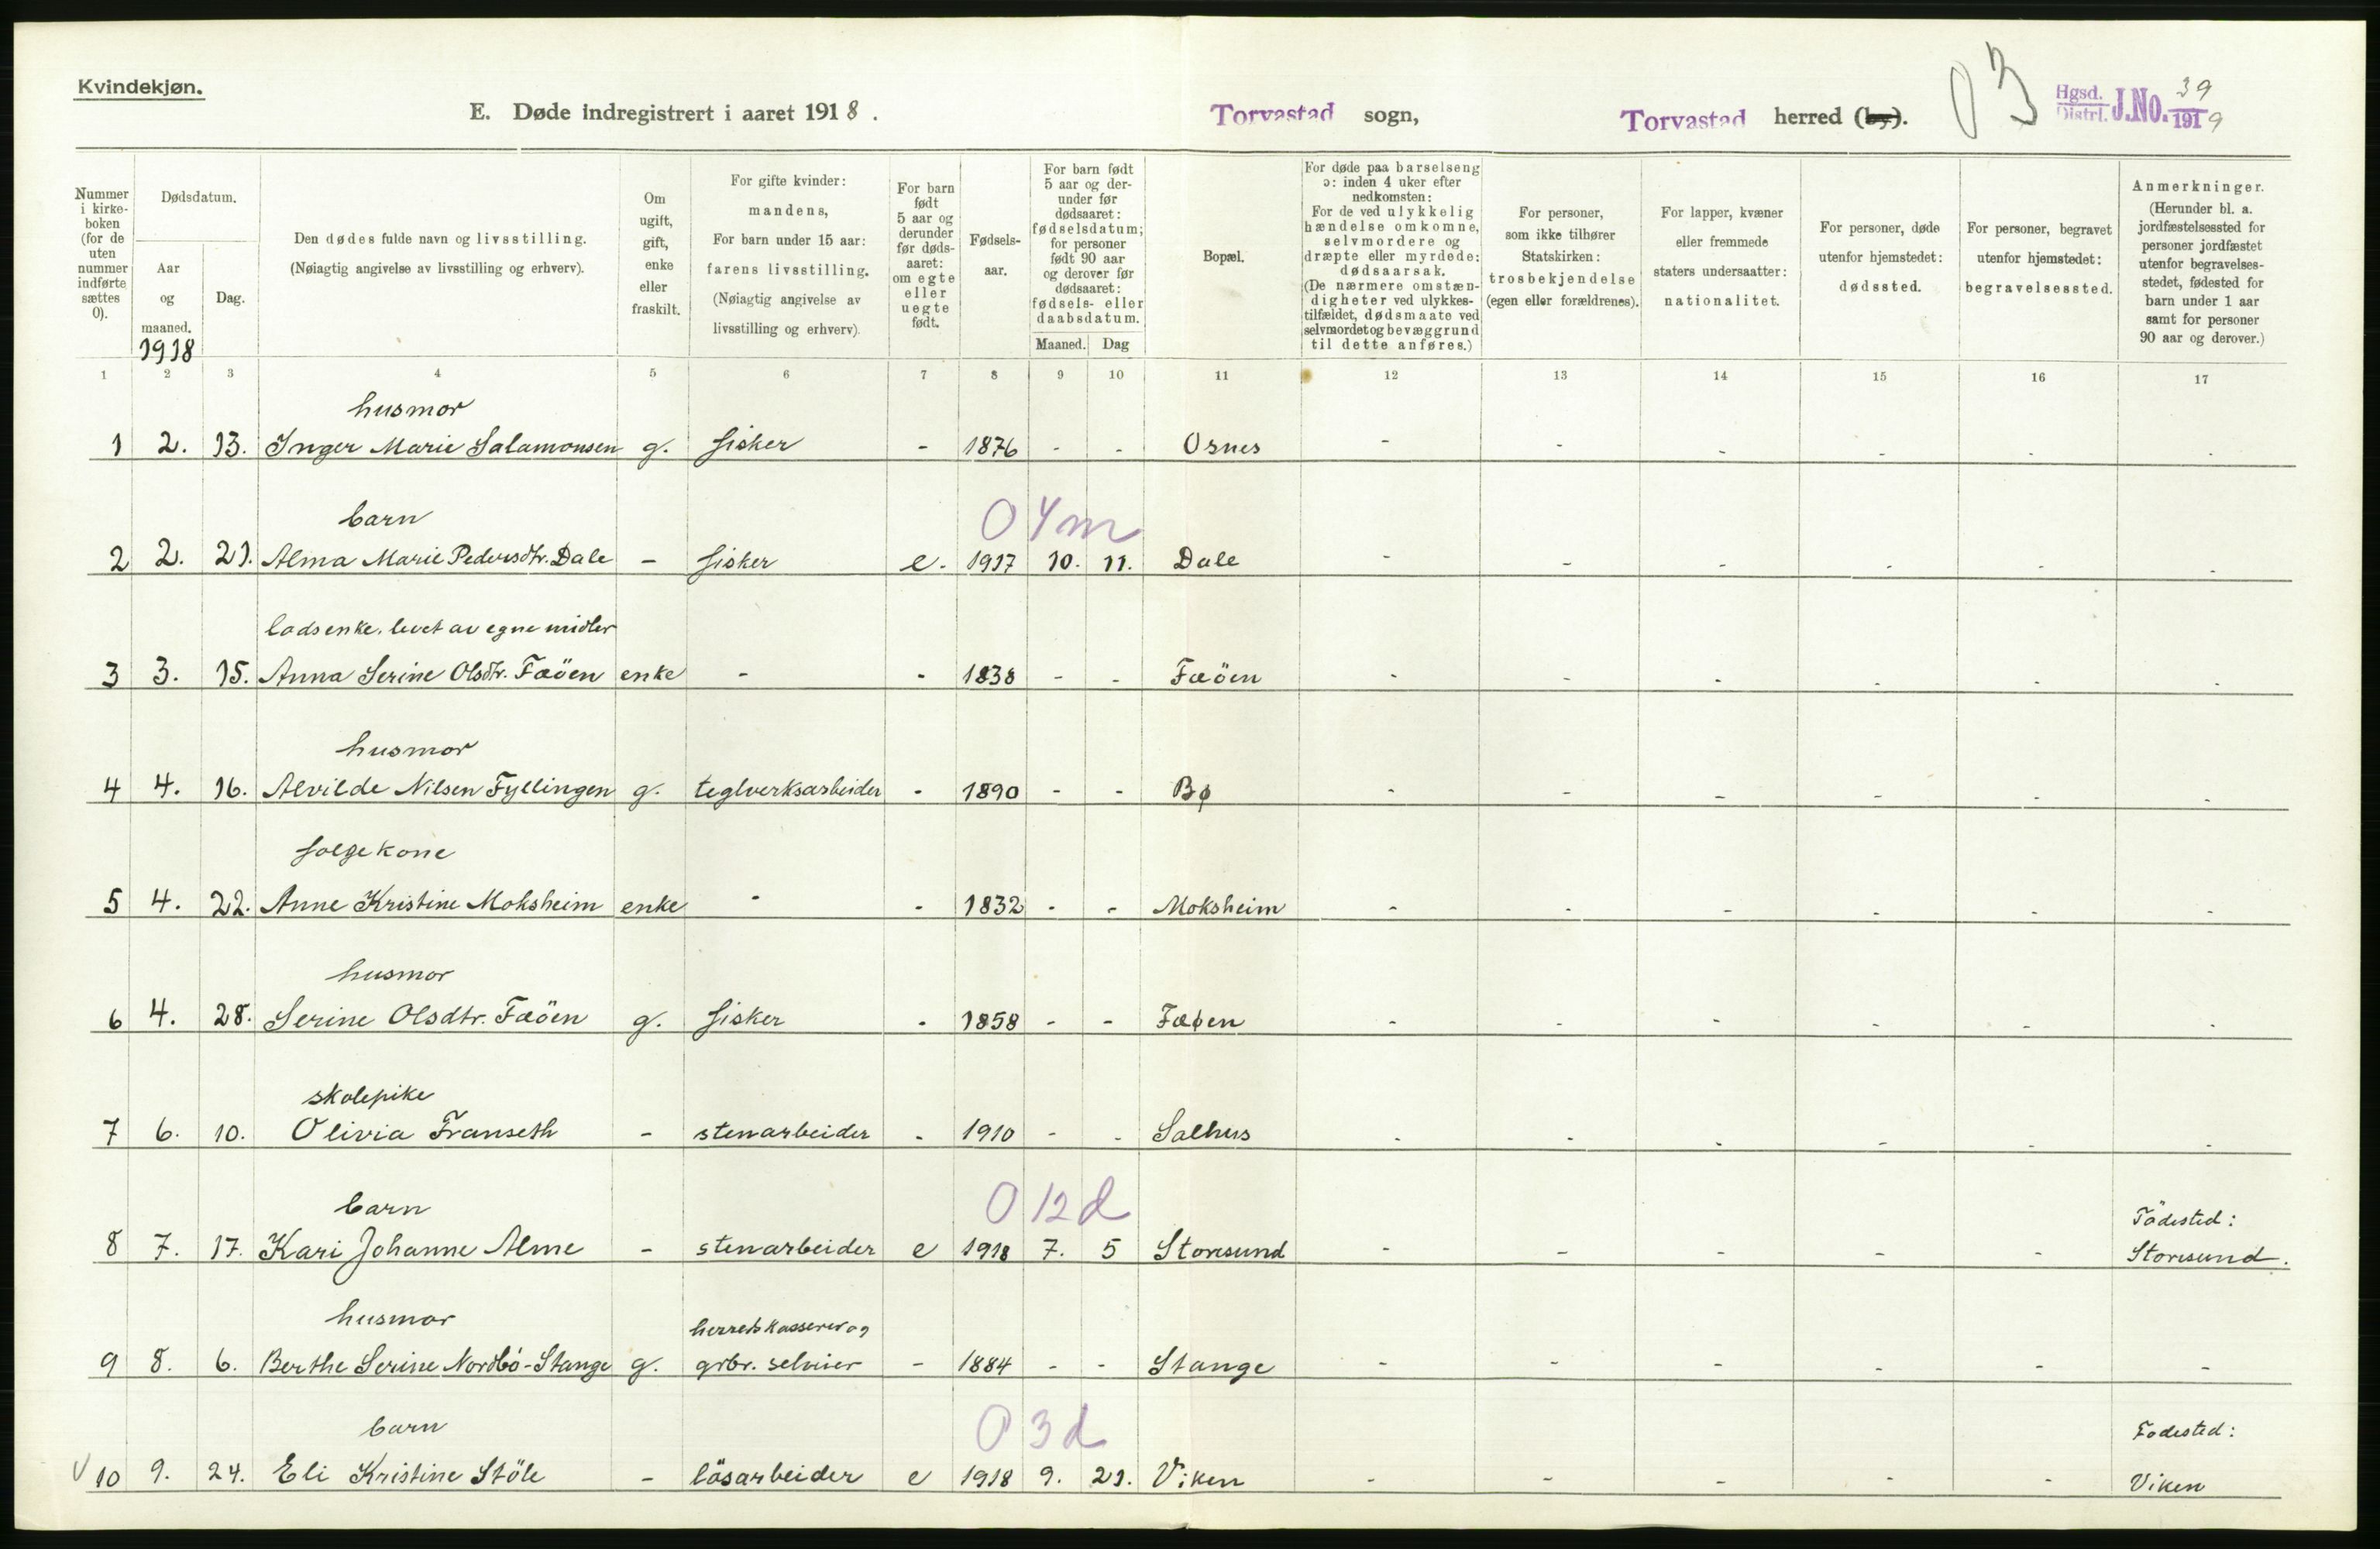 Kvindekjøn.
E. Døde indregistrert i aaret 1918.
Torvastad sogn,
Torvastad herred (by).
03
Hgsd. Distrl. J.No. 39 1919
Nummer i kirke- boken (for de uten nummer indførte sættes 0).
Dødsdatum.
Aar og maaned.
1918
Dag.
Den dødes fulde navn og livsstilling.
(Nøiagtig angivelse av livsstilling og erhverv).
Om ugift, gift, enke eller fraskilt.
For gifte kvinder: mandens,
For barn under 15 aar: farens livsstilling.
(Nøiagtig angivelse av livsstilling og erhverv).
For barn født 5 aar og derunder før døds- aaret: om egte eller uegte født.
Fødsels- aar.
For barn født 5 aar og der- under før dødsaaret: fødselsdatum; for personer født 90 aar og derover før dødsaaret: fødsels- eller daabsdatum.
Maaned. Dag
Bopæl.
For døde paa barselseng ɔ: inden 4 uker efter nedkomsten:
For de ved ulykkelig hændelse omkomne, selvmordere og dræpte eller myrdede: dødsaarsak.
(De nærmere omstæn- digheter ved ulykkes- tilfældet, dødsmaate ved selvmordet og bevæggrund til dette anføres.)
For personer, som ikke tilhører Statskirken: trosbekjendelse (egen eller forældrenes).
For lapper, kvæner eller fremmede staters undersaatter: nationalitet.
For personer, døde utenfor hjemstedet: dødssted.
For personer, begravet utenfor hjemstedet: begravelsessted.
Anmerkninger.
(Herunder bl. a. jordfæstelsessted for personer jordfæstet utenfor begravelses- stedet, fødested for barn under 1 aar samt for personer 90 aar og derover.)
1 2 3 4 5 6 7 8 9 10 11 12 13 14 15 16 17
husmor
1 2. 13. Inger Marie Salamonsen g. fisker - 1876 - - Osnes - - - - - -
barn 0 4 m
2 2. 21. Alma Marie Pedersdtr. Dale - fisker e. 1917 10. 11. Dale - - - - - -
losenke. levet av egne midler
3 3. 15. Anna Serine Olsdtr. Fæöen enke - - 1838 - - Fæöen - - - - - -
husmor
4 4. 16. Alvilde Nilsen Fyllingen g. teglverksarbeider - 1890 - - Bø - - - - - -
folgekone
5 4. 22. Anne Kristine Moksheim enke - - 1832 - - Moksheim - - - - - -
husmor
6 4. 28. Serine Olsdtr. Fæöen g. fisker - 1858 - - Fæøen - - - - - -
skolepike
7 6. 10. Olivia Franseth - stenarbeider - 1910 - - Salhus - - - - - -
barn 0 12 d Födested:
8 7. 17. Kari Johanne Alme - stenarbeider e 1918 7. 5 Storesund - - - - - Storesund.
husmor herredskasserer og
9 8. 6. Berthe Serine Nordbö-Stange g. grbr. selveier - 1884 - - Stange - - - - - -
barn 0 3 d Fodested:
V 10 9. 24. Eli Kristine Stöle - lösarbeider e 1918 9. 21. Viken - - - - - Viken